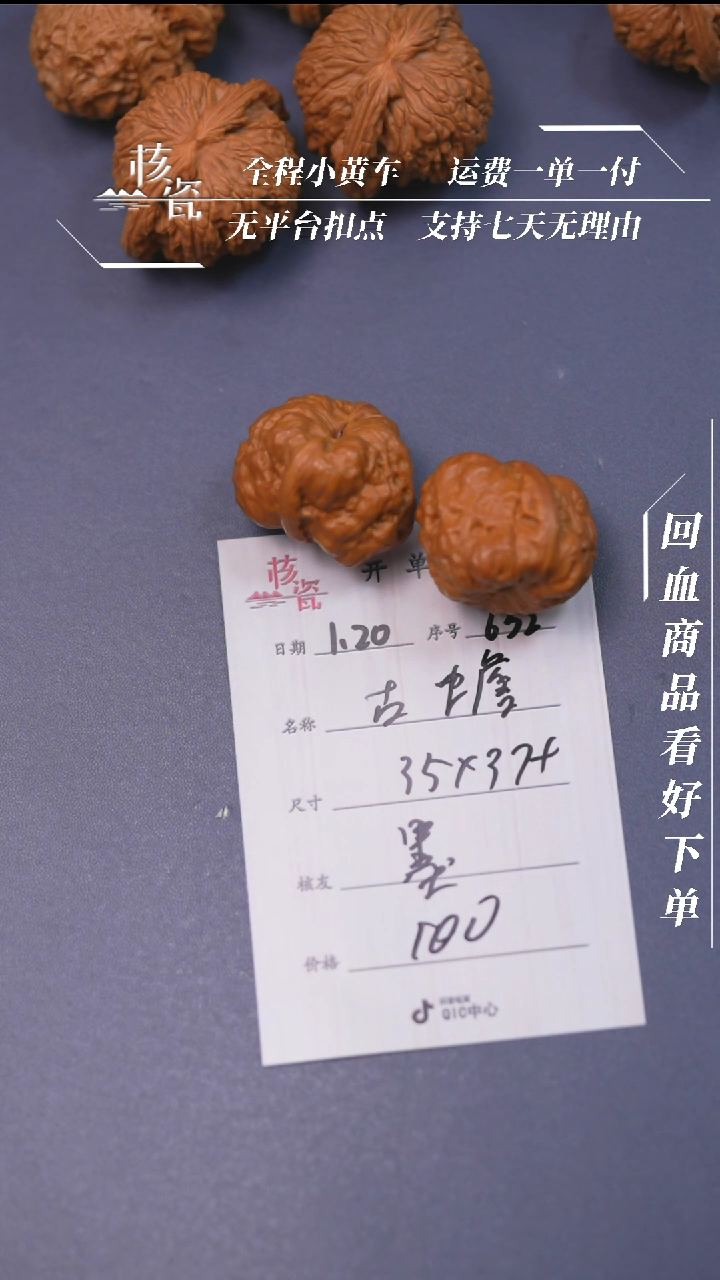 核瓷
全程小黄车 运费一单一付
无平台扣点 支持七天无理由
回血商品看好下单
核瓷
开单
日期 1.20 序号 652
名称 古蟾
尺寸 35×37+
核友 墨
价格 100
QIC中心